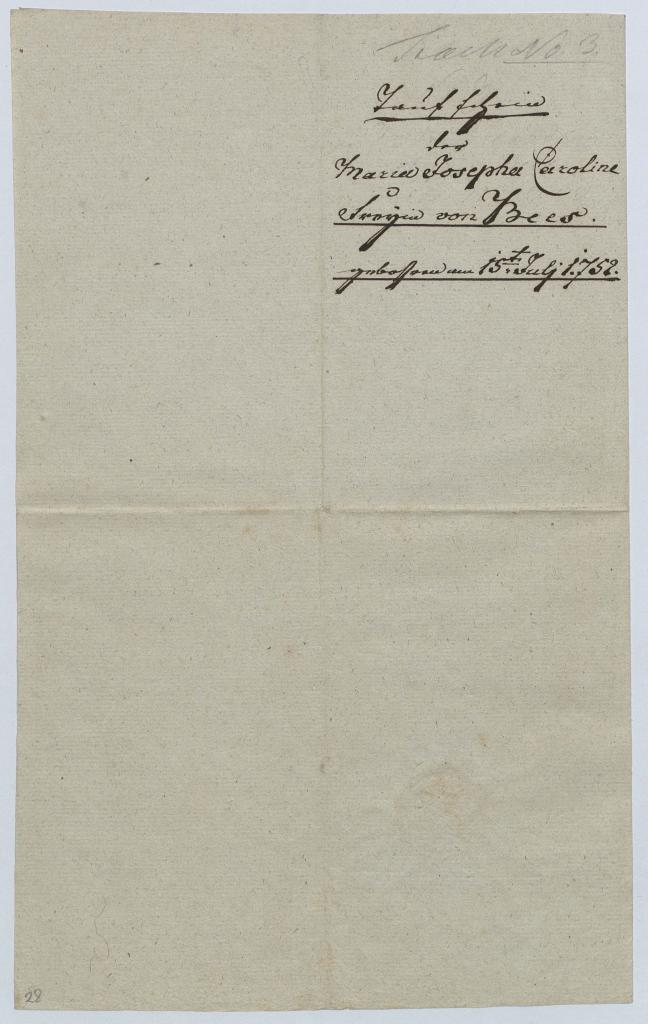 No. 3
Taufschein
der
Maria Josepha Caroline
Freyin von Bees.
gebohren am 15ten Julj 1752.
28